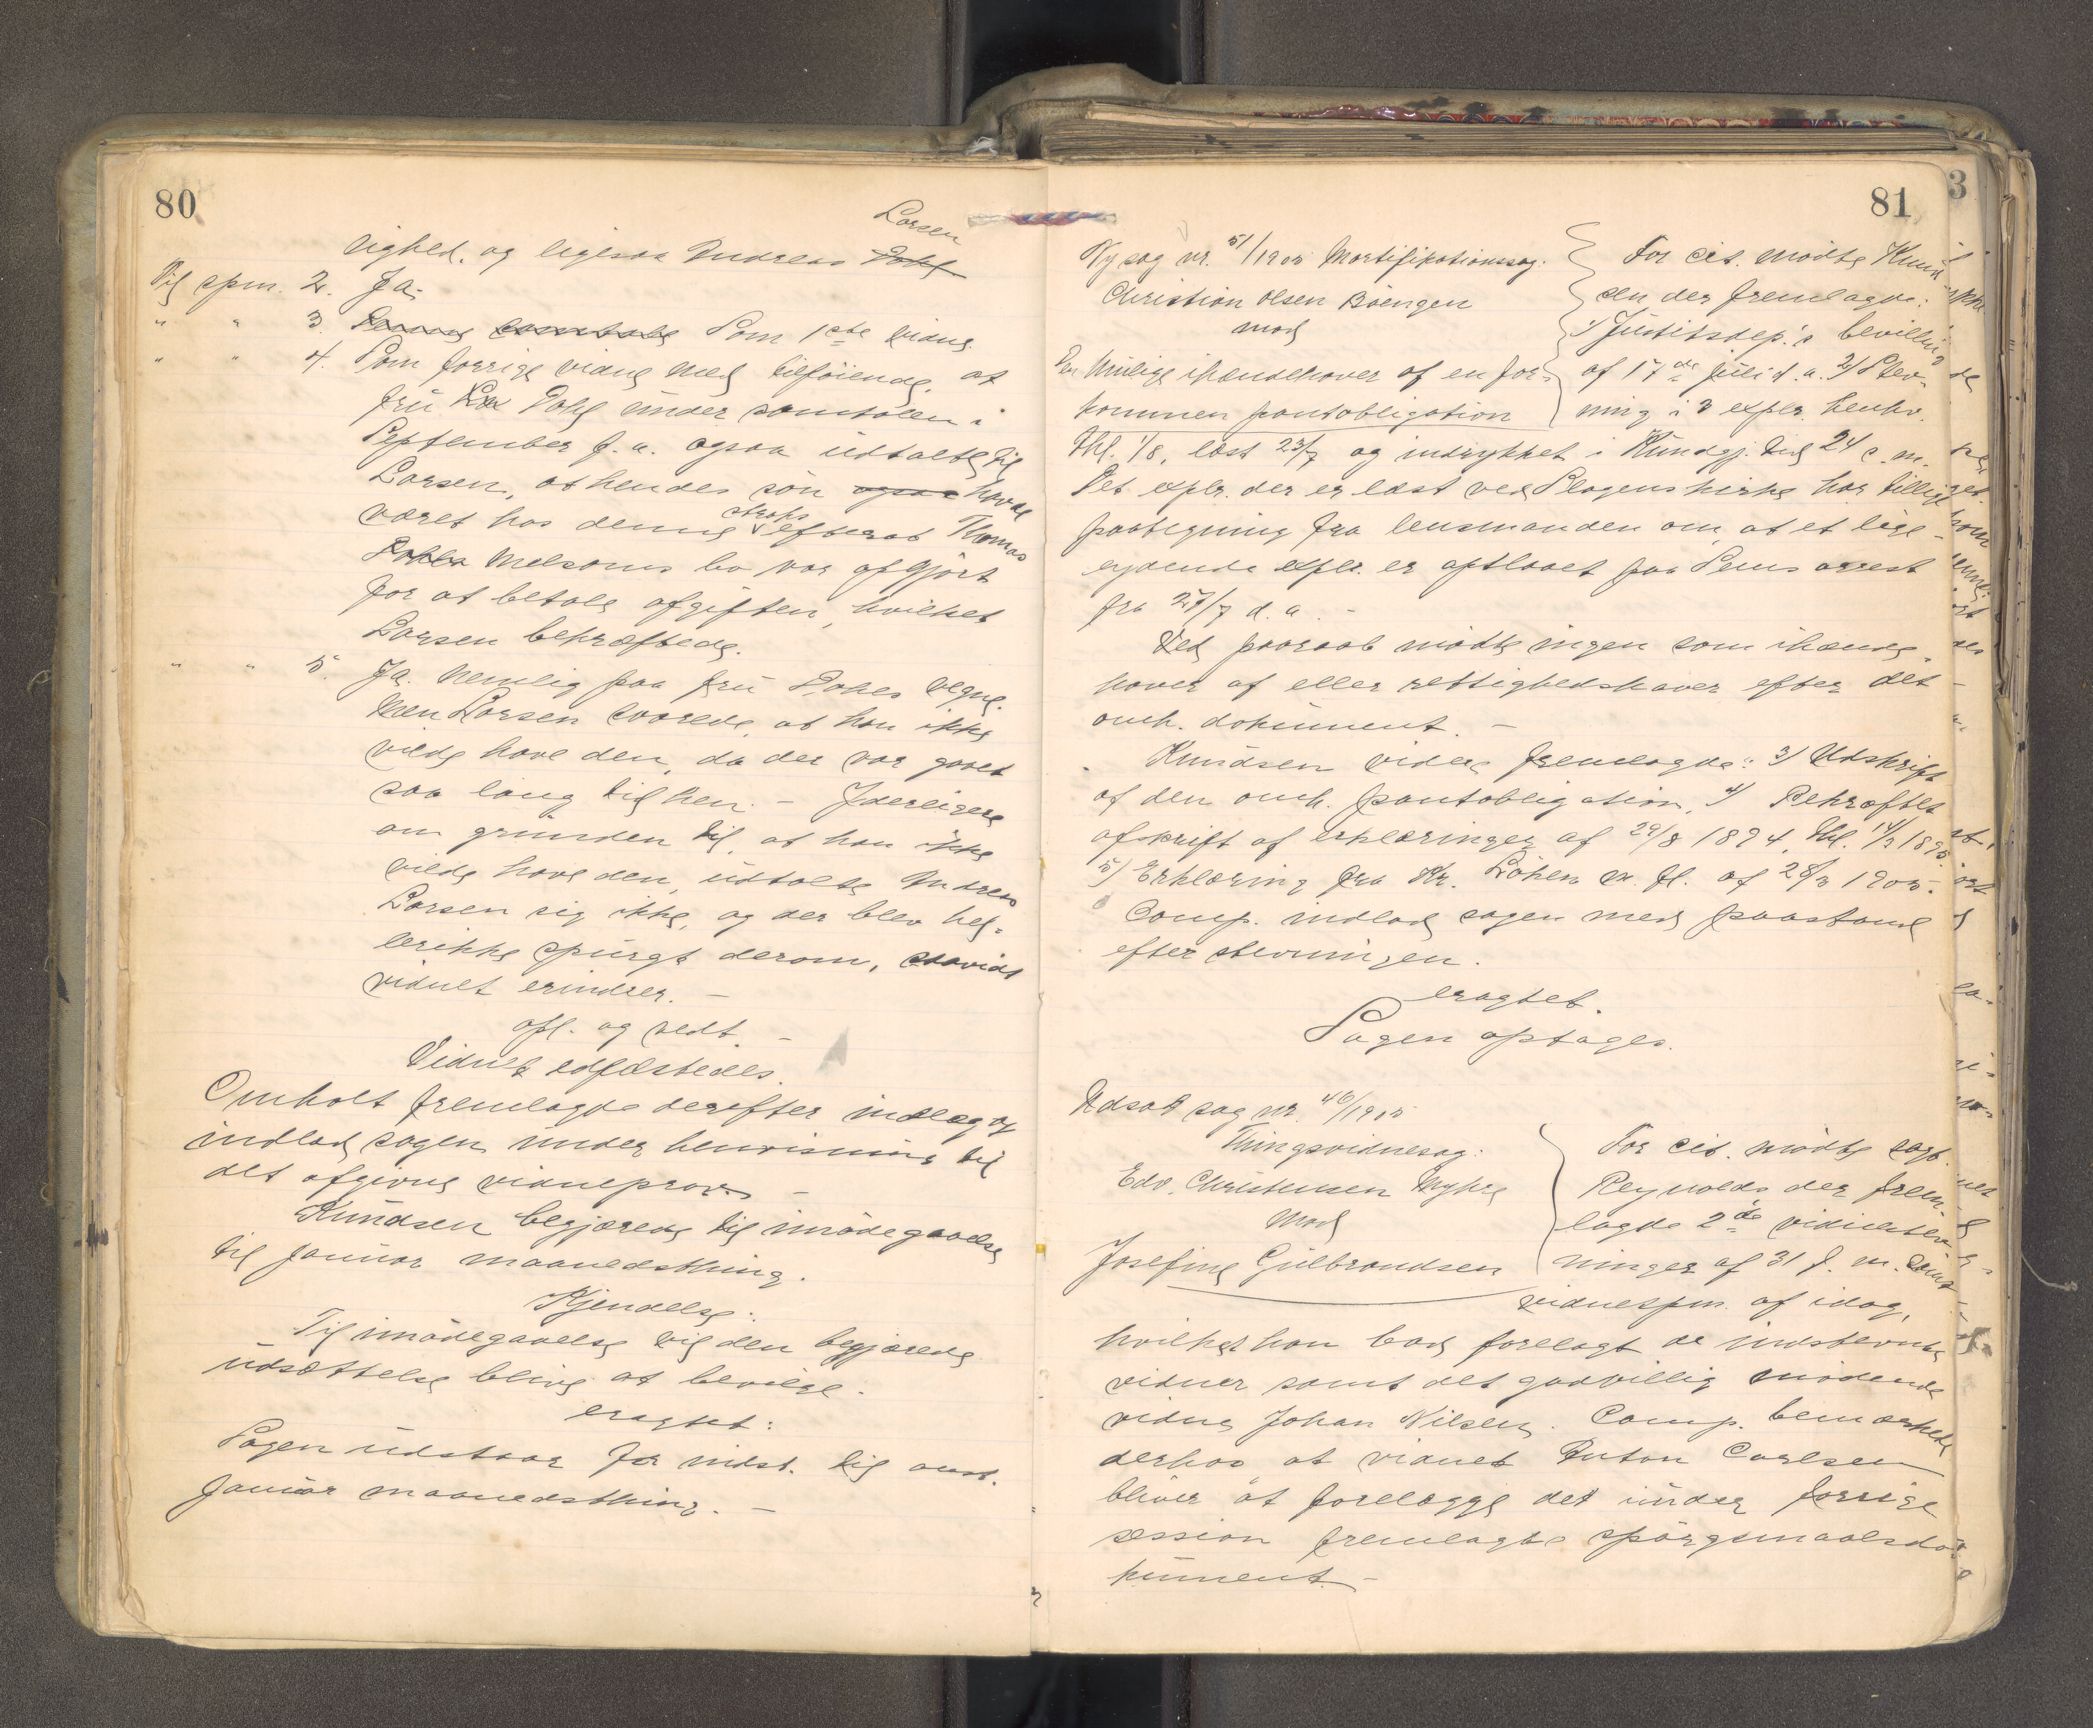 80
Larsen
lighed. og ligesaa Andreas Dahl
Til spm. 2. Ja.
" " 3. Som 1ste vidne.
" " 4. Som forrige vidne med tilföiende, at
fru Dahl under samtalen i
September f. a. ogsaa udtalte til
Larsen, at hendes sön ogsaa havde
været hos denne straks efter at Thomas
Melsoms bo var afgjört
for at betale afgiften, hvilket
Larsen bekræftede.
" " 5. Ja. Nemlig paa fru Dahls vegne.
Men Larsen svarede, at han ikke
vilde have den, da der var gaaet
saa lang tid hen. – Yderligere
om grunden til, at han ikke
vilde have den, udtalte Andreas
Larsen sig ikke, og der blev hel-
ler ikke spurgt derom, saavidt
vidnet erindrer. –
opl. og vedt. –
Vidnet edfæstedes.
Omholt fremlagde derefter indlæg og
indlod sagen under henvisning til
det afgivne vidneprov. –
Knudsen begjærede til imödegaaelse
til januar maanedsthing.
Kjendelse:
Til imödegaaelse vil den begjærede
udsættelse blive at bevilge.
eragtet:
Sagen udstaar for indst. til anst.
januar maanedsthing. –
81
Ny sag nr. 51/1905 Mortifikationssag.
Christian Olsen Böengen
mod
En mulig ihændehaver af en for-
kommen pantobligation
For cit. mödte Knud-
sen der fremlagde:
1) Justitsdep.'s bevilling
af 17de juli d. a. 2) Stev-
ning i 3 explr. henhv.
thl. 1/8, læst 23/7 og indrykket i Kundgj. tid 24 s. m.
Det explr. der er læst ved Slagens kirke har tillige
paategning fra lensmanden om, at et lige-
lydende explr. er opslaaet paa Sems arrest
fra 27/7 d. a. –
Ved paaraab mödte ingen som ihænde-
haver af eller rettighedshaver efter det
omh. dokument. –
Knudsen videre fremlagde: 3) Udskrift
af den omh. pantobligation, 4) Bekræftet
afskrift af erklæringer af 29/8 1894, thl. 14/2 1895.
5) Erklæring fra Kr. Löhen m. fl. af 28/3 1905.
Comp. indlod sagen med paastand
efter stevningen.
eragtet.
Sagen optages.
Udsat sag nr. 46/1905
Thingsvidnesag:
Edv. Christensen Myhre
mod
Josefine Gulbrandsen
For cit. mödte sagf.
Reynolds der frem-
lagde 2de vidnestev-
ninger af 31 f. m. samt
vidnespm. af idag,
hvilket han bad forelagt de indstevnte
vidner samt det godvillig mödende
vidne Johan Nilsen. Comp. bemærkede
derhos at vidnet Anton Carlsen
bliver at forelægge det under forrige
session fremlagte spörgsmaalsdo-
kument. –